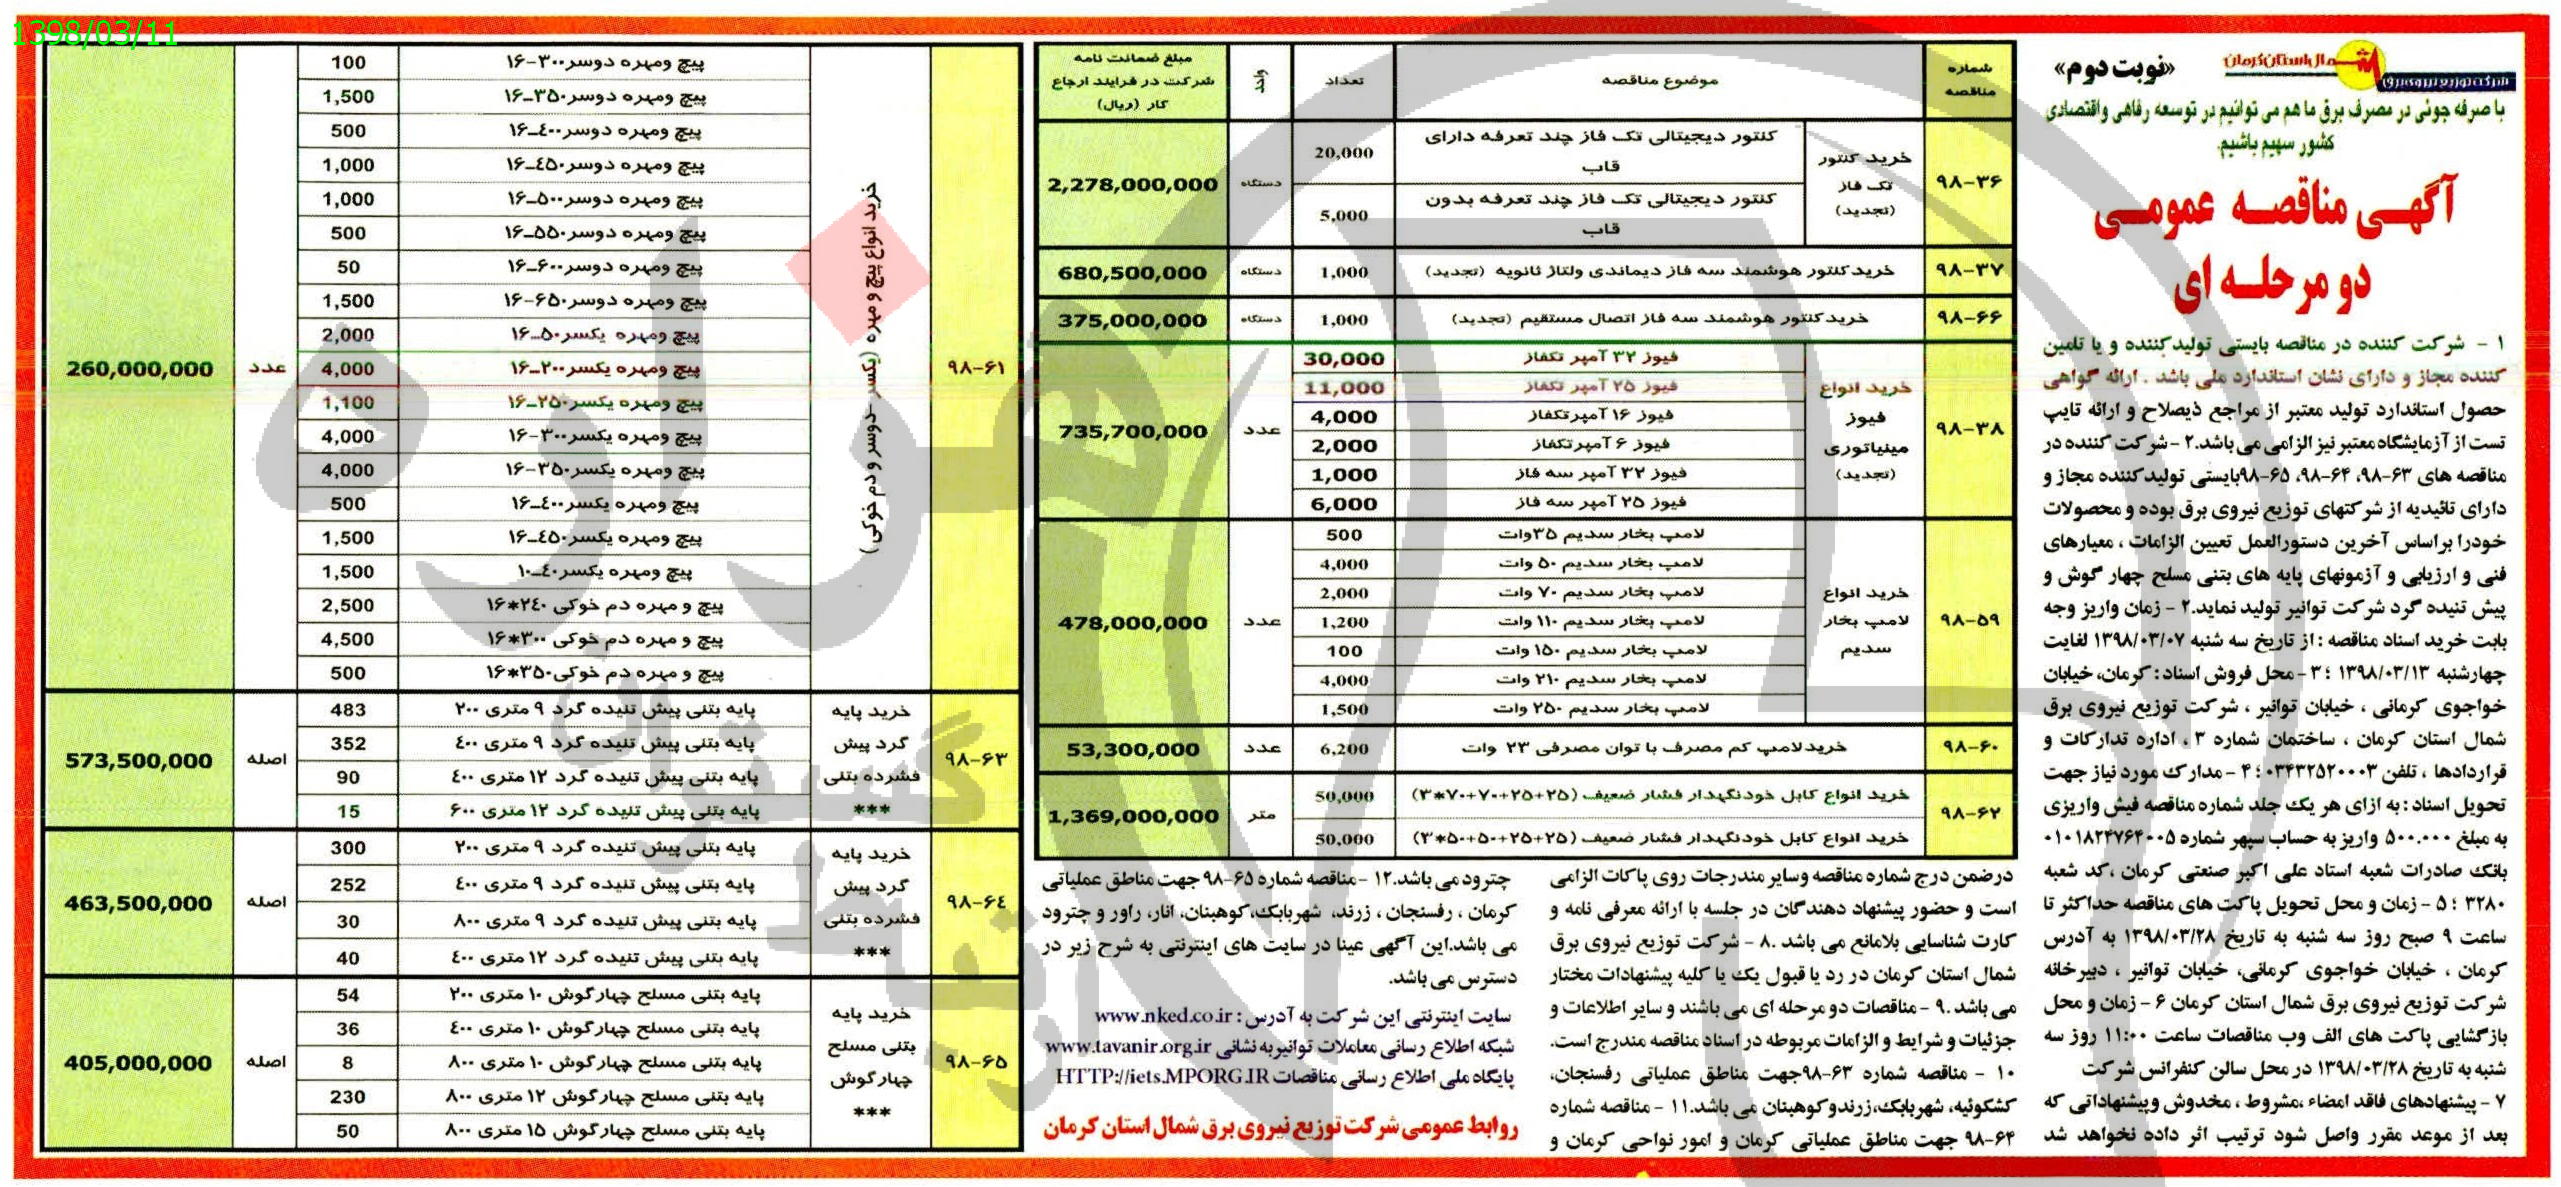 1398/03/11
شرکت توزیع نیروی برق
شمال استان کرمان
«نوبت دوم»
با صرفه جوئی در مصرف برق ما هم می توانیم در توسعه رفاهی واقتصادی
کشور سهیم باشیم.
آگهی مناقصه عمومی
دو مرحله ای
۱ - شرکت کننده در مناقصه بایستی تولیدکننده و یا تامین
کننده مجاز و دارای نشان استاندارد ملی باشد . ارائه گواهی
حصول استاندارد تولید معتبر از مراجع ذیصلاح و ارائه تایپ
تست از آزمایشگاه معتبر نیز الزامی می باشد.۲ - شرکت کننده در
مناقصه های ۶۳-۹۸، ۶۴-۹۸، ۶۵-۹۸بایستی تولیدکننده مجاز و
دارای تائیدیه از شرکتهای توزیع نیروی برق بوده و محصولات
خودرا براساس آخرین دستورالعمل تعیین الزامات ، معیارهای
فنی و ارزیابی و آزمونهای پایه های بتنی مسلح چهار گوش و
پیش تنیده گرد شرکت توانیر تولید نماید.۲ - زمان واریز وجه
بابت خرید اسناد مناقصه : از تاریخ سه شنبه ۱۳۹۸/۰۳/۰۷ لغایت
چهارشنبه ۱۳۹۸/۰۳/۱۳ ؛ ۳ - محل فروش اسناد : کرمان، خیابان
خواجوی کرمانی ، خیابان توانیر ، شرکت توزیع نیروی برق
شمال استان کرمان ، ساختمان شماره ۳ ، اداره تدارکات و
قراردادها ، تلفن ۰۳۴۳۲۵۲۰۰۰۳ ؛ ۴ - مدارک مورد نیاز جهت
تحویل اسناد : به ازای هر یک جلد شماره مناقصه فیش واریزی
به مبلغ ۵۰۰.۰۰۰ واریز به حساب سپهر شماره ۰۱۰۱۸۲۴۷۶۴۰۰۵
بانک صادرات شعبه استاد علی اکبر صنعتی کرمان ،کد شعبه
۳۲۸۰ ؛ ۵ - زمان و محل تحویل پاکت های مناقصه حداکثر تا
ساعت ۹ صبح روز سه شنبه به تاریخ ۱۳۹۸/۰۳/۲۸ به آدرس
کرمان ، خیابان خواجوی کرمانی، خیابان توانیر ، دبیرخانه
شرکت توزیع نیروی برق شمال استان کرمان ۶ - زمان و محل
بازگشایی پاکت های الف وب مناقصات ساعت ۱۱:۰۰ روز سه
شنبه به تاریخ ۱۳۹۸/۰۳/۲۸ در محل سالن کنفرانس شرکت
۷ - پیشنهادهای فاقد امضاء ،مشروط ، مخدوش وپیشنهاداتی که
بعد از موعد مقرر واصل شود ترتیب اثر داده نخواهد شد
شماره مناقصه موضوع مناقصه تعداد واحد مبلغ ضمانت نامه شرکت در فرایند ارجاع کار (ریال)
۹۸-۳۶ خرید کنتور تک فاز (تجدید) کنتور دیجیتالی تک فاز چند تعرفه دارای قاب 20,000 دستگاه 2,278,000,000
کنتور دیجیتالی تک فاز چند تعرفه بدون قاب 5,000
۹۸-۳۷ خرید کنتور هوشمند سه فاز دیماندی ولتاژ ثانویه (تجدید) 1,000 دستگاه 680,500,000
۹۸-۶۶ خرید کنتور هوشمند سه فاز اتصال مستقیم (تجدید) 1,000 دستگاه 375,000,000
۹۸-۳۸ خرید انواع فیوز مینیاتوری (تجدید) فیوز ۳۲ آمپر تکفاز 30,000 عدد 735,700,000
فیوز ۲۵ آمپر تکفاز 11,000
فیوز ۱۶ آمپرتکفاز 4,000
فیوز ۶ آمپرتکفاز 2,000
فیوز ۳۲ آمپر سه فاز 1,000
فیوز ۲۵ آمپر سه فاز 6,000
۹۸-۵۹ خرید انواع لامپ بخار سدیم لامپ بخار سدیم ۳۵وات 500 عدد 478,000,000
لامپ بخار سدیم ۵۰ وات 4,000
لامپ بخار سدیم ۷۰ وات 2,000
لامپ بخار سدیم ۱۱۰ وات 1,200
لامپ بخار سدیم ۱۵۰ وات 100
لامپ بخار سدیم ۲۱۰ وات 4,000
لامپ بخار سدیم ۲۵۰ وات 1,500
۹۸-۶۰ خرید لامپ کم مصرف با توان مصرفی ۲۳ وات 6,200 عدد 53,300,000
۹۸-۶۲ خرید انواع کابل خودنگهدار فشار ضعیف (۲۵+۲۵+۷۰+۷۰*۳) 50,000 متر 1,369,000,000
خرید انواع کابل خودنگهدار فشار ضعیف (۲۵+۲۵+۵۰+۵۰*۳) 50,000
درضمن درج شماره مناقصه وسایر مندرجات روی پاکات الزامی
است و حضور پیشنهاد دهندگان در جلسه با ارائه معرفی نامه و
کارت شناسایی بلامانع می باشد .۸ - شرکت توزیع نیروی برق
شمال استان کرمان در رد یا قبول یک یا کلیه پیشنهادات مختار
می باشد .۹ - مناقصات دو مرحله ای می باشند و سایر اطلاعات و
جزئیات و شرایط و الزامات مربوطه در اسناد مناقصه مندرج است.
۱۰ - مناقصه شماره ۶۳-۹۸جهت مناطق عملیاتی رفسنجان،
کشکوئیه، شهربابک،زرندوکوهبنان می باشد.۱۱ - مناقصه شماره
۶۴-۹۸ جهت مناطق عملیاتی کرمان و امور نواحی کرمان و
چترود می باشد.۱۲ - مناقصه شماره ۶۵-۹۸ جهت مناطق عملیاتی
کرمان ، رفسنجان ، زرند، شهربابک،کوهبنان، انار، راور و چترود
می باشد.این آگهی عینا در سایت های اینترنتی به شرح زیر در
دسترس می باشد.
سایت اینترنتی این شرکت به آدرس : www.nked.co.ir
شبکه اطلاع رسانی معاملات توانیربه نشانی www.tavanir.org.ir
پایگاه ملی اطلاع رسانی مناقصات HTTP://iets.MPORG.IR
روابط عمومی شرکت توزیع نیروی برق شمال استان کرمان
۹۸-۶۱ خرید انواع پیچ و مهره (یکسر-دوسر و دم خوکی) پیچ ومهره دوسر۳۰۰-۱۶ 100 عدد 260,000,000
پیچ ومهره دوسر۳۵۰-۱۶ 1,500
پیچ ومهره دوسر۴۰۰-۱۶ 500
پیچ ومهره دوسر۴۵۰-۱۶ 1,000
پیچ ومهره دوسر۵۰۰-۱۶ 1,000
پیچ ومهره دوسر۵۵۰-۱۶ 500
پیچ ومهره دوسر۶۰۰-۱۶ 50
پیچ ومهره دوسر۶۵۰-۱۶ 1,500
پیچ ومهره یکسر۵۰-۱۶ 2,000
پیچ ومهره یکسر۲۰۰-۱۶ 4,000
پیچ ومهره یکسر۲۵۰-۱۶ 1,100
پیچ ومهره یکسر۳۰۰-۱۶ 4,000
پیچ ومهره یکسر۳۵۰-۱۶ 4,000
پیچ ومهره یکسر۴۰۰-۱۶ 500
پیچ ومهره یکسر۴۵۰-۱۶ 1,500
پیچ ومهره یکسر۴۰-۱۰ 1,500
پیچ و مهره دم خوکی ۲۴۰*۱۶ 2,500
پیچ و مهره دم خوکی ۳۰۰*۱۶ 4,500
پیچ و مهره دم خوکی۳۵۰*۱۶ 500
۹۸-۶۳ خرید پایه گرد پیش فشرده بتنی *** پایه بتنی پیش تنیده گرد ۹ متری ۲۰۰ 483 اصله 573,500,000
پایه بتنی پیش تنیده گرد ۹ متری ۴۰۰ 352
پایه بتنی پیش تنیده گرد ۱۲ متری ۴۰۰ 90
پایه بتنی پیش تنیده گرد ۱۲ متری ۶۰۰ 15
۹۸-۶۴ خرید پایه گرد پیش فشرده بتنی *** پایه بتنی پیش تنیده گرد ۹ متری ۲۰۰ 300 اصله 463,500,000
پایه بتنی پیش تنیده گرد ۹ متری ۴۰۰ 252
پایه بتنی پیش تنیده گرد ۹ متری ۸۰۰ 30
پایه بتنی پیش تنیده گرد ۱۲ متری ۴۰۰ 40
۹۸-۶۵ خرید پایه بتنی مسلح چهارگوش *** پایه بتنی مسلح چهارگوش ۱۰ متری ۲۰۰ 54 اصله 405,000,000
پایه بتنی مسلح چهارگوش ۱۰ متری ۴۰۰ 36
پایه بتنی مسلح چهارگوش ۱۰ متری ۸۰۰ 8
پایه بتنی مسلح چهارگوش ۱۲ متری ۸۰۰ 230
پایه بتنی مسلح چهارگوش ۱۵ متری ۸۰۰ 50